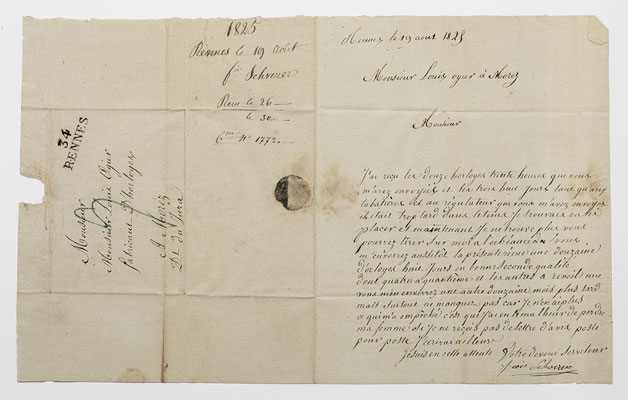 1825
Rennes le 19 Août
fs Schverer
Recu le 26
le 30
6m No 1772
34
RENNES
Monsieur
Monsieur Louis Ogier
fabricant D'horloges
A Morez
Dt du Jura
Rennes le 19 aout 1825
Monsieur Louis ogier à Morez
Monsieur
J'ai reçu les douze horloges trente heures que vous
m'avez envoyéés et les trois huit Jours tans qu'a
tabatière et au régulateur que vous m'avez envoyez
il était trop tard dans le tems Je trouvais ou les
placer et maintenant Je ne trouve plus vous
pouvez tirer sur moi a l'echéance vous
m'enverrez aussitôt la présente reçue une douzaine
d'orloges huit Jours en bonne seconde qualité
dont quatre a quantième et les autres a reveil une
vous m'en enverrez une autre douzaine mois plus tard
mais surtout ne manquez pas car Je n'en ai plus
ce qui m'a empêché c'est que J'ai eu le malheur de perdre
ma femme si Je ne reçois pas de lettre d'avis poste
pour poste J'ecrirai ailleur
Je suis en cette attente Votre devoué Serviteur
Schverer